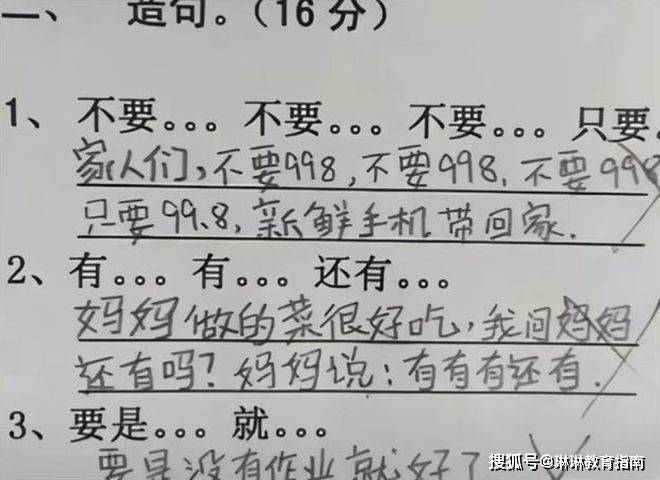 一、 造句。（16分）
1、不要。。。不要。。。不要。。。只要。
家人们，不要998，不要998，不要998
只要99.8，新鲜手机带回家.
2、有。。。有。。。还有。。。
妈妈做的菜很好吃，我问妈妈
还有吗？妈妈说：有有有还有.
3、要是。。。就。。。
要是没有作业就好了
搜狐号@琳琳教育指南